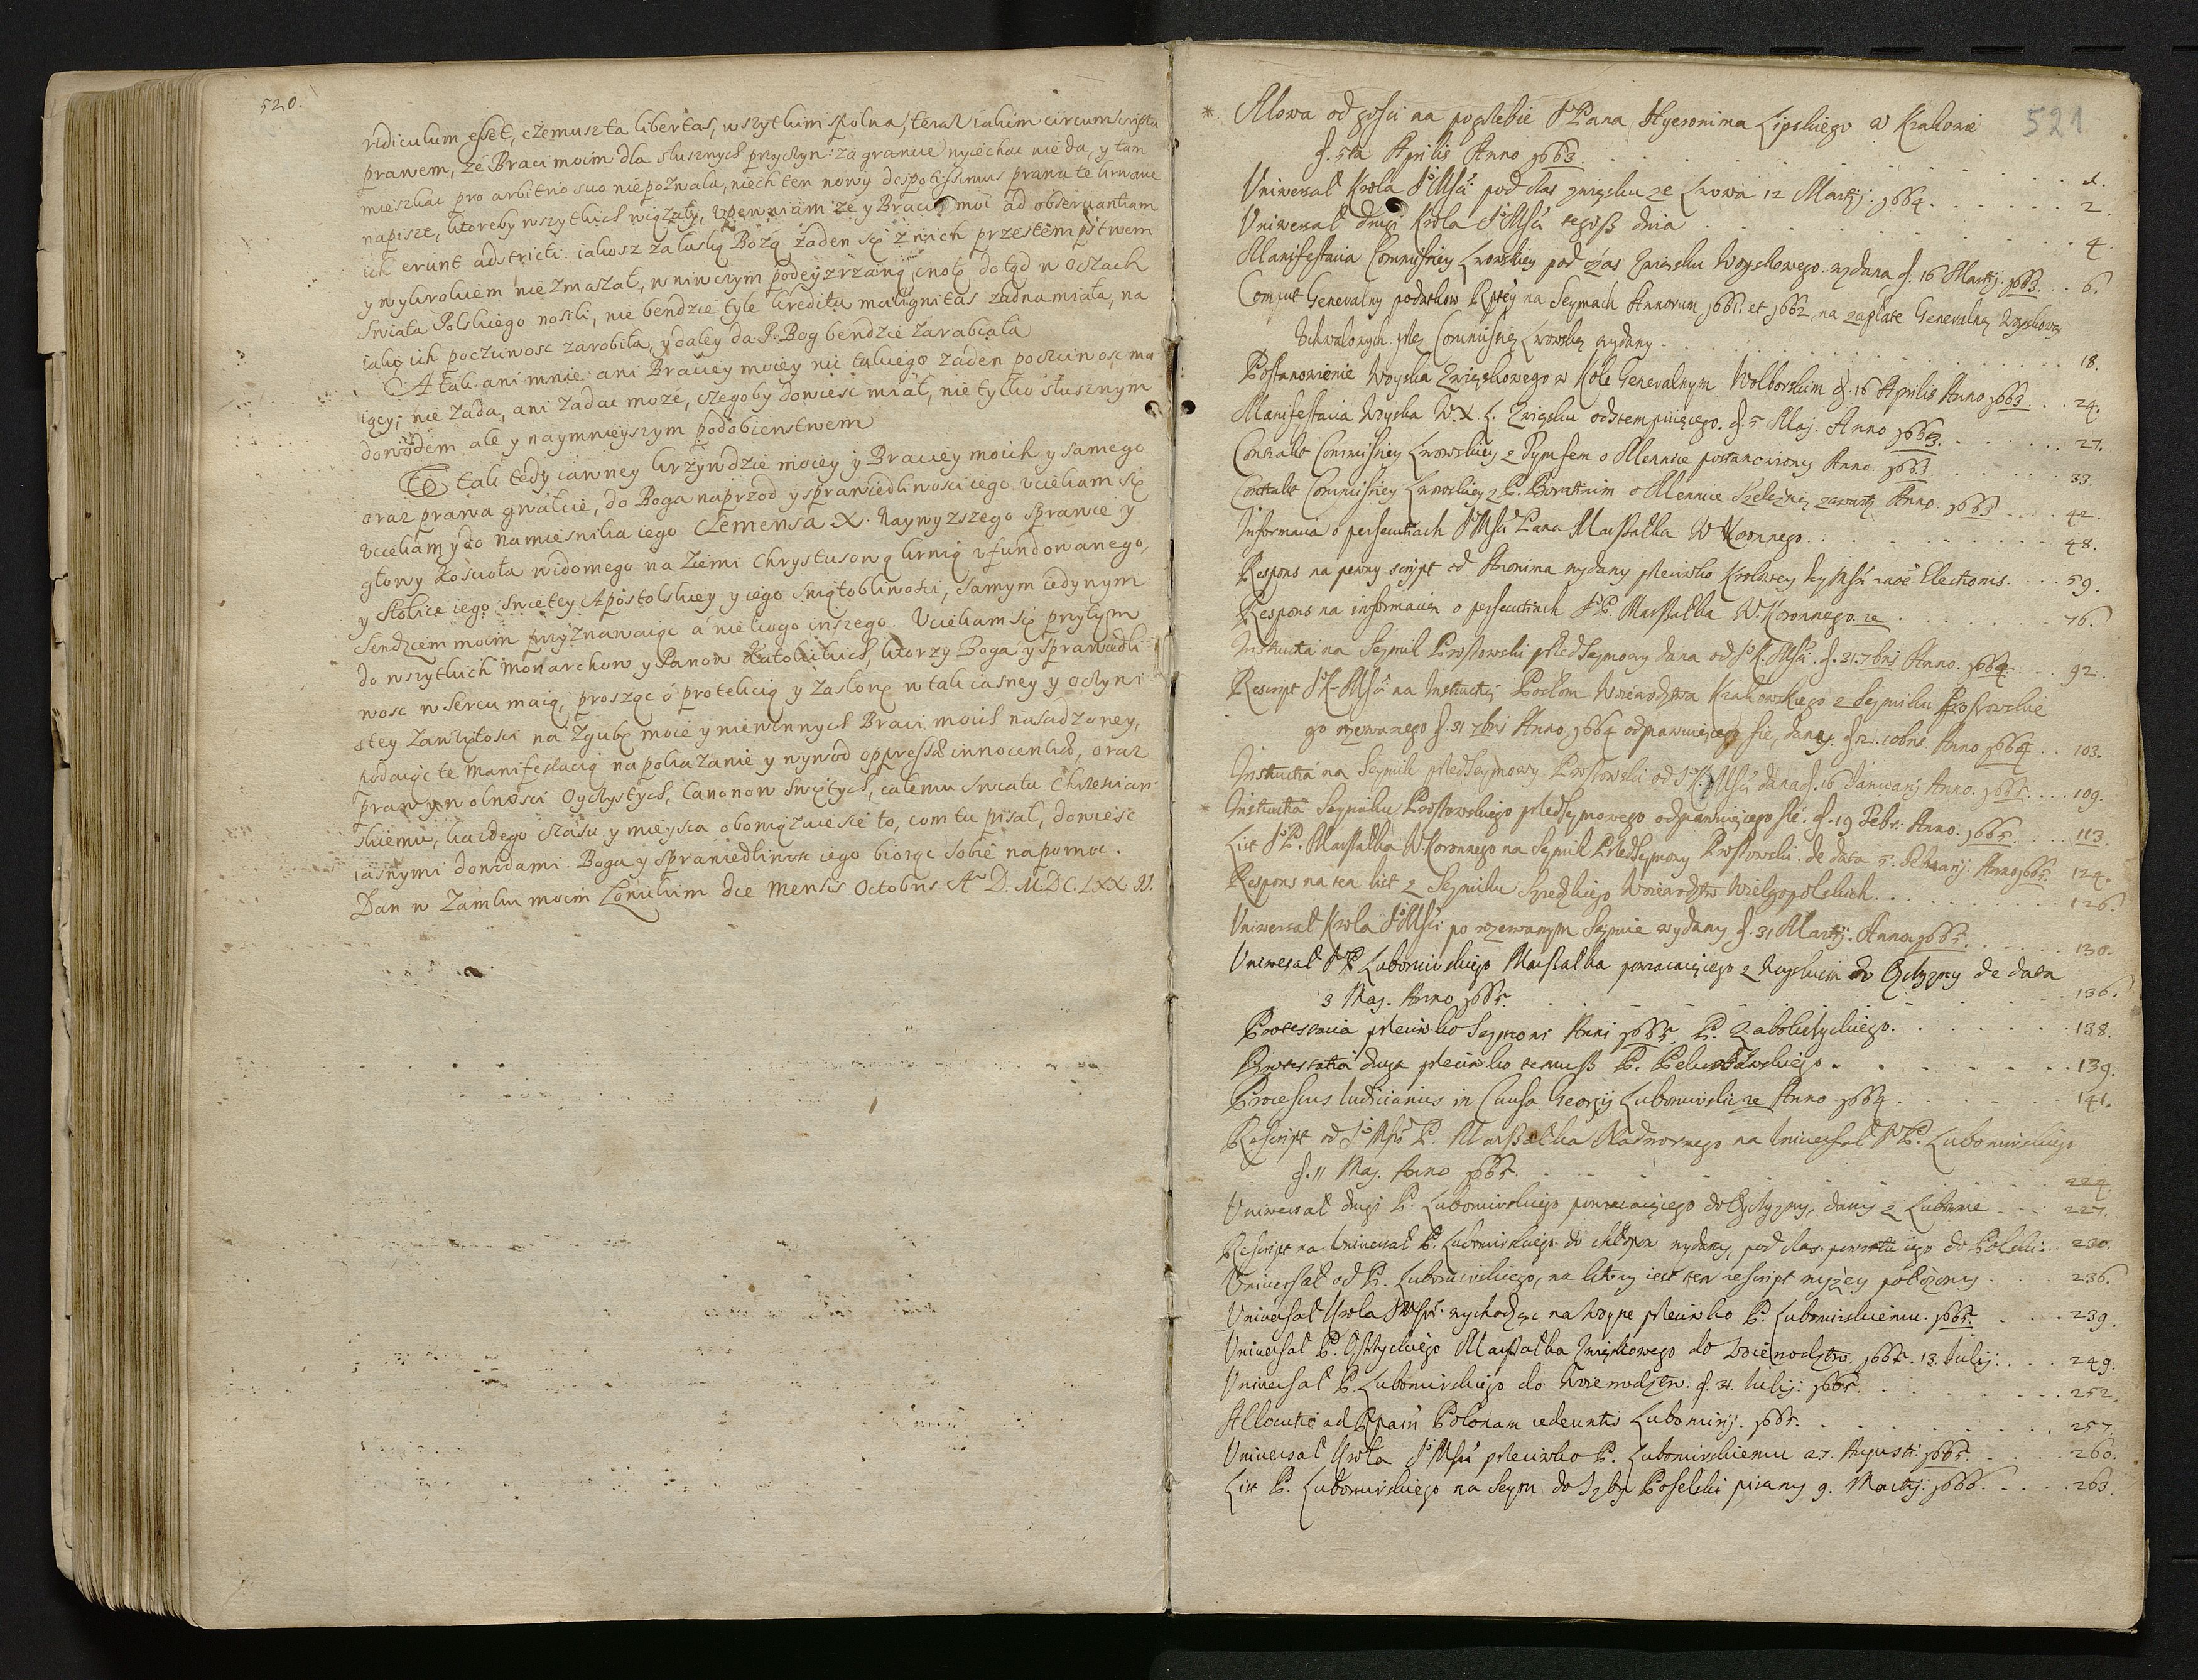 520.
ridiculum esset, czemusz ta libertas, wszytkim spolna, teraz iakim circumscripta
prawem, że Braci moim dla słusznych przyczyn za granice wyiechac nie da, y tam
mieszkac pro arbitrio suo niepozwala, niech ten nowy despotissimus prawa te krwawe
napisze, ktoreby wszytkich wiązały, upewniam że y Bracia moi ad observantiam
ich erunt adstricti. iakosz za łaską Bożą żaden się z nich przestempstwem
y wykrokiem nie zmazał, w niwczym podeyzrzaną cnotę dotąd w oczach
Swiata Polskiego nosili, nie bendzie tyle kreditu malignitas żadna miała, na
iakię ich poczciwosc zarobiła, y daley da P. Bog bendzie zarabiała
A tak ani mnie ani Braciey moiey nic takiego żaden poczciwosc ma
iący, nie zada, ani zadac może, czegoby dowiesc miał, nie tylko słusznym
dowodem ale y naymnieyszym podobienstwem
W tak tedy iawney krzywdzie moiey y Braciey moich y samego
oraz prawa gwałcie, do Boga naprzod y sprawiedliwosci iego uciekam się
uciekam y do namiesnika iego Clemensa X. Naywyzszego sprawce y
głowy Koscioła widomego na ziemi Chrystusową krwią ufundowanego,
y stolice iego Swietey Apostolskiey y iego swiątobliwosci, samym iedynym
Sendziem moim przyznawaiąc a nie kogo inszego. Uciekam się przytym
do wszytkich Monarchow y Panow Katolickich, ktorzy Boga y sprawiedli
wosc w sercu maią, prosząc o protekcią y zasłonę w tak iasney y oczywi
stey zawziętosci na zgubę moię y niewinnych Braci moich nasadzoney,
podaiąc te Manifestacią na pokazanie y wywod oppressae innocentiae, oraz
praw y wolnosci Oyczystych, Canonow Swiętych, całemu Swiatu Chrzescian
skiemu, każdego czasu y mieysca obowięzuię się to, com tu pisał, dowiesc
iasnymi dowodami. Boga y sprawiedliwosc iego biorąc sobie na pomoc.
Dan w Zamku moim Lonskim die mensis Octobris A D. MDC.LXX.II.
521
* Mowa od gosci na pogrzebie JPana Hyeronima Lipskiego w Krakowie
d. 5ta Aprilis Anno 1663. 1.
Uniwersał Krola JMśći pod czas związku ze Lwowa 12 Martij. 1664. 2.
Uniwersał drugi Krola JMśći tegosz dnia 4.
Manifestacia Commissiey Lwowskiey pod czas Związku Woyskowego wydana d. 16 Martij. 1663. 6.
Comput Generalny podatkow Rptey na Seymach Annorum 1661. et 1662 na zapłatę Generalną Woyskową
Uchwalonych przez Commissią Lwowską wydany 18.
Postanowienie Woyska Związkowego w Kole Generalnym Wolborskim d. 16 Aprilis Anno 1663. 24.
Manifestacia Woyska W.X.L. Związku odstempuięcego. d. 5 Maj. Anno 1663. 27.
Contrakt Commissiey Lwowskiey z Tymfem o Mennice postanowiony Anno. 1663. 33.
Contrakt Commissiey Lwowskiey z P. Boratinim o Mennice Szelężną zawarty Anno. 1663 42.
Informacia o persecutiach JMśći Pana Marszałka W Koronnego. 48.
Respons na pewny script od Anonima wydany przeciwko Krolowey Jey Mśći raõe Electionis. 59.
Respons na informacią o persecutiach JP. Marszałka W. Koronnego. re 76.
Instructia na Seymik Proszowski przedseymowy dana od J.K.Mśći. d. 31. 7bris Anno. 1664. 92.
Rescript J.K.Mśći na Instructią Posłom Woiewodztwa Krakowskiego z Seymiku Proszowskie
go rozerwanego d. 31 7bris Anno 1664 odprawuięcego sie, dany. d. 2. 10bris. Anno 1664 103.
Instructia na Seymik przedseymowy Proszowski od J.K.Mśći dana d. 16 Januarij Anno. 1665. 109.
Instructia Seymiku Proszowskiego przedseymowego odprawuięcego się. d. 19 Febr. Anno. 1665. 113.
List JP. Marszałka W.Koronnego na Seymik Przedseymowy Proszowski. de data 5. Februarij. Anno 1665. 124.
Respons na ten list z Seymiku Srzedzkiego Woiewodztw Wielgopolskich. 126.
Uniwersał Krola JMśći po rozerwanym Seymie wydany d. 31 Martij. Anno 1665. 130.
Uniwersał JP. Lubomirskiego Marszałka powracaiącego z Woyskiem do Oyczyzny de data
3 Maj. Anno 1665. 136.
Protestacia przeciwko Seymowi Anni 1665. P. Zabokrzyckiego. 138.
Protestatia druga przeciwko temusz P. 139.
Processus Iudiciarius in Causa Georgij Lubomirski re Anno 1664 141.
Rescript od J Mśći P. Marszałka Nadwornego na Universał JP. Lubomirskiego
d. 11 Maj. Anno 1665. 224.
Uniwersał drugi P. Lubomirskiego powracaięcego do Oyczyzny, dany z Lubowle 227.
Rescript na Universał P. Lubomirskiego do chłopow wydany, pod czas powrotu iego do Polski. 230.
Universał od P. Lubomirskiego, na ktory iest ten rescript wyżey położony 236.
Universał Krola JMśći wychodząc na Woynę przeciwko P. Lubomirskiemu. 1665. 239.
Universał P. Ostrzyckiego Marszałka Związkowego do Woiewodztw. 1665. 13. Iulij. 249.
Universał P. Lubomirskiego do Woiewodztw. d. 31. Iulij. 1665. 252.
Allocutio ad Rpam Polonam redeuntis Lubomirij. 1665. 257.
Universał Krola JMśći przeciwko P. Lubomirskiemu 27. Augusti. 1665. 260.
List P. Lubomirskiego na Seym do Izby Poselski pisany 9. Martij. 1666. 263.